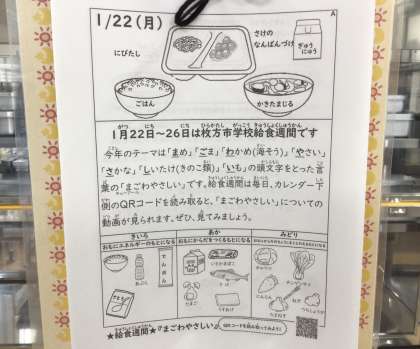 1/22(月)
A
さけの
なんばんづけ
ぎゅう
にゅう
にびたし
ごはん
かきたまじる
がつ にち にち ひらかたし がっこう きゅうしょくしゅうかん
1月22日～26日は枚方市学校給食週間です
今年のテーマは「まめ」「ごま」「わかめ(海そう)」「やさい」
「さかな」「しいたけ(きのこ類)」「いも」の頭文字をとった言
葉の「まごわやさしい」です。給食週間は毎日、カレンダー下
側のQRコードを読み取ると、「まごわやさしい」についての
動画が見られます。ぜひ、見てみましょう。
きいろ
あか
みどり
おもにエネルギーのもとになる
おもにからだをつくるもとになる
でんぷん
たまご
にんじん
★給食週間★『まごわやさしい』
QRコードを読み取ってみよう!